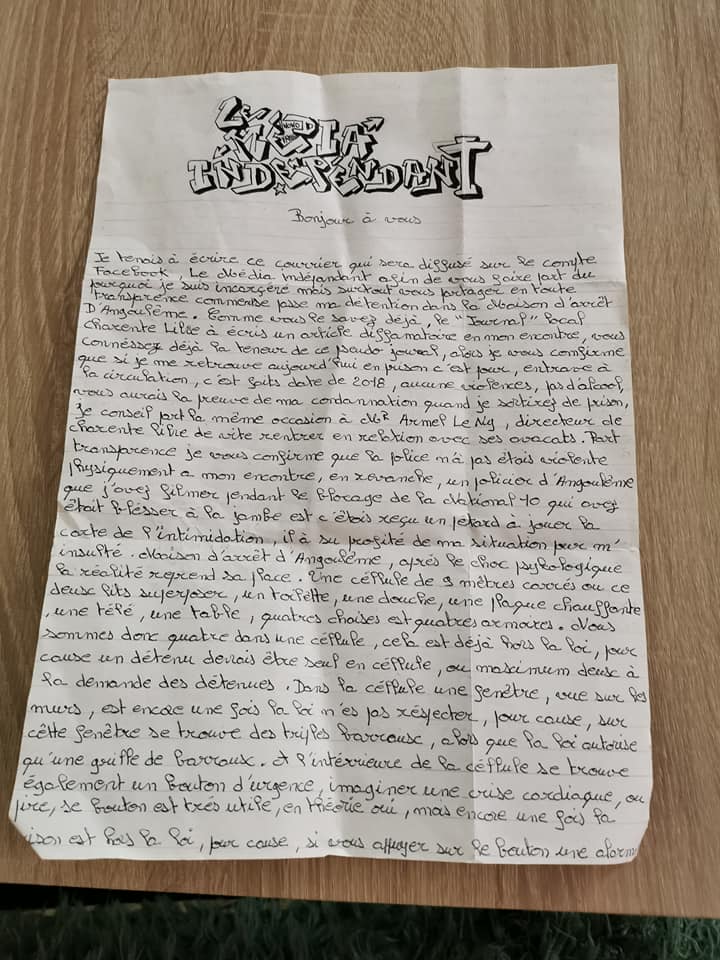 LE MEDIA
INDEPENDANT
Bonjour à vous
Je tenais à écrire ce courrier qui sera diffusé sur le compte
Facebook, Le Média indépandant afin de vous faire part du
pourquoi je suis incarçéré mais surtout vous partager en toute
transparence comment se passe ma détention dans la Maison d'arrêt
D'Angoulême. Comme vous le savez déjà, le "Journal" local
charente Libre à écris un article diffamatoire en mon encontre, vous
connéssez déjà la teneur de ce pseudo journal, alors je vous comfirme
que si je me retrouve aujourd'hui en prison c'est pour, entrave à
la circulation, c'est faits date de 2018, aucune violences, pas d'alcool,
vous aurais la preuve de ma condannation quand je sortirez de prison,
je conseil part la même occasion à Mr Armel Le Ny, directeur de
charente libre de vite rentrer en relation avec ses avocats. Part
transparence je vous confirme que la police n'a pas étais violente
physiquement a mon encontre, en revanche, un policier d'Angoulême
que j'avez filmer pendant le blocage de la National 10 qui avez
était bléssér à la jambe est c'étais reçu un petard à jouer la
carte de l'intimidation, il à su profité de ma situation pour m'
insulté. Maison d'arrêt d'Angoulême, aprés le choc psykologique
la réalité reprend sa place. Une céllule de 9 mètres carrés ou ce
deux lits superposer, un toilette, une douche, une plaque chauffante
, une télé, une table, quatres chaises est quatres armoires. Nous
sommes donc quatre dans une céllule, cela est déjà hors la loi, pour
cause un détenu devais être seul en céllule, ou maximum deux à
la demande des détenues. Dans la céllule une fenêtre, vue sur les
murs, est encore une fois la loi n'es pas réspecter, pour cause, sur
cette fenêtre se trouve des triples barroux, alors que la loi autorise
qu'une griffe de barroux. A l'intérieure de la céllule se trouve
également un bouton d'urgence, imaginer une crise cardiaque, ou
pire, se bouton est trés utile, en théorie oui, mais encore une fois la
ison est hors la loi, pour cause, si vous appuyer sur le bouton une alarm